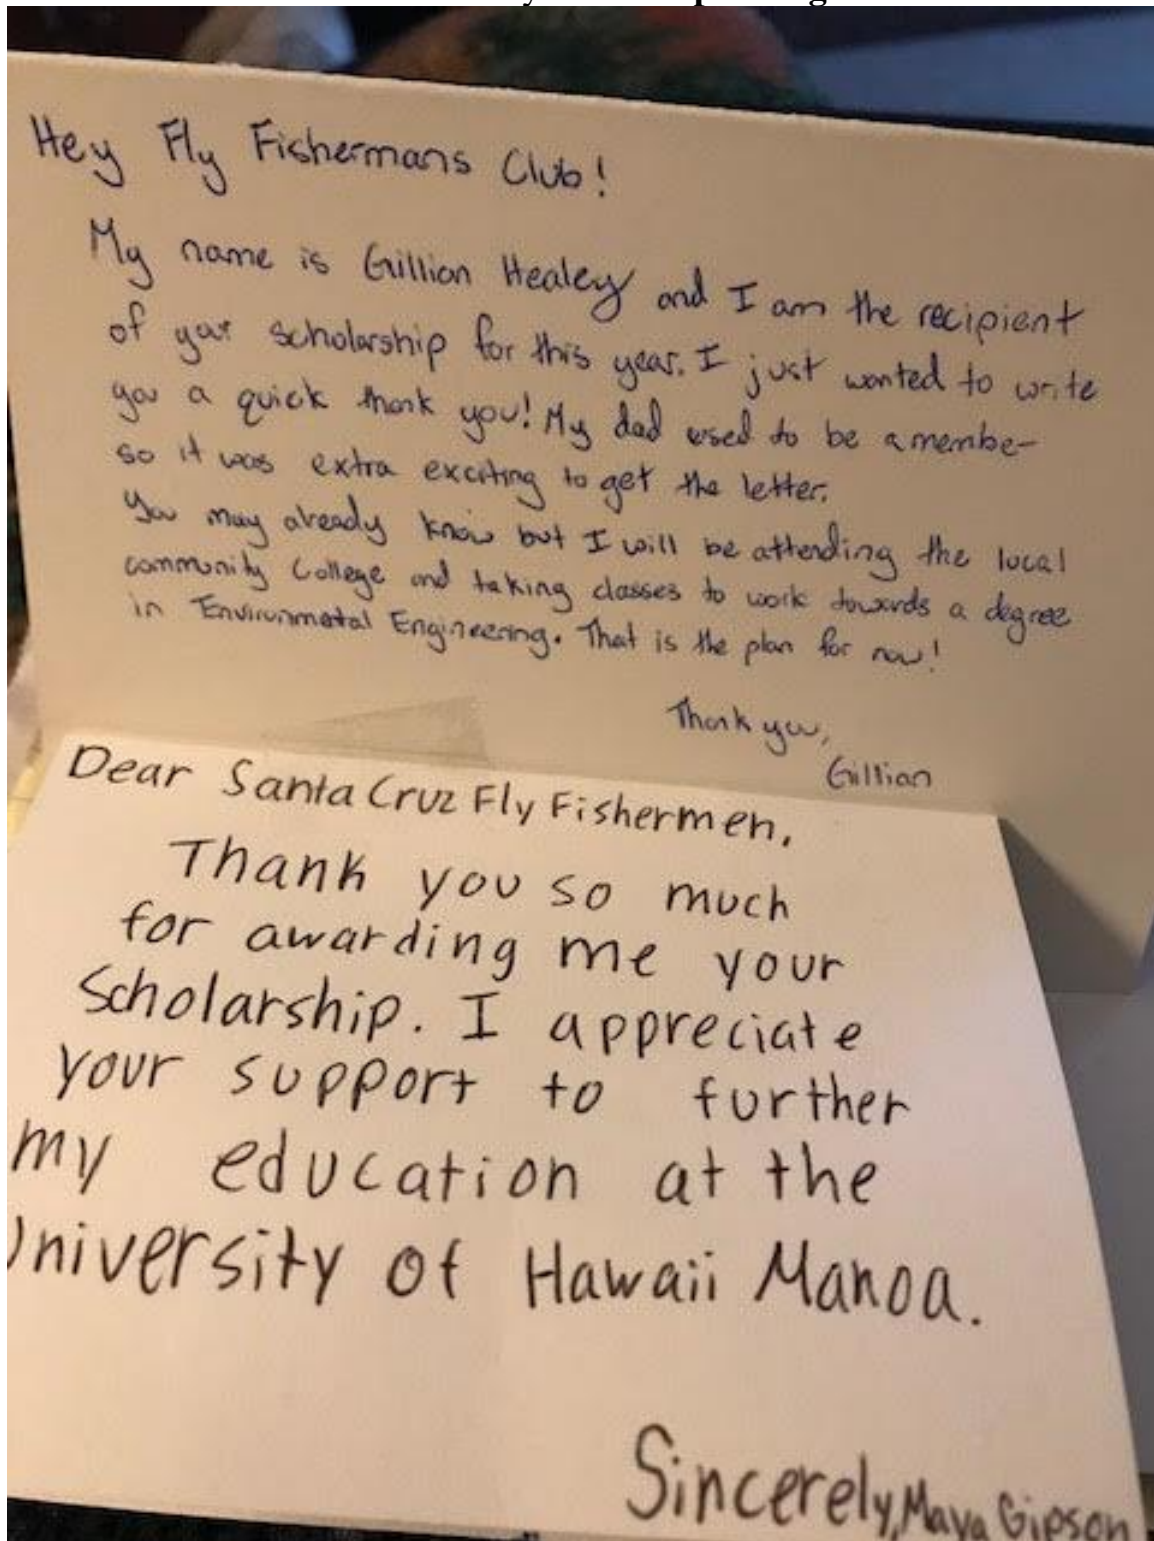 Hey Fly Fishermans Club!
My name is Gillian Healey and I am the recipient
of your scholarship for this year. I just wanted to write
you a quick thank you! My dad used to be a membe
so it was extra exciting to get the letter.
You may already know but I will be attending the local
community College and taking classes to work towards a degree
in Environmetal Engineering. That is the plan for now!
Thank you,
Gillian
Dear Santa Cruz Fly Fishermen,
Thank you so much
for awarding me your
Scholarship. I appreciate
your support to further
my education at the
University of Hawaii Manoa.
Sincerely, Maya Gipson